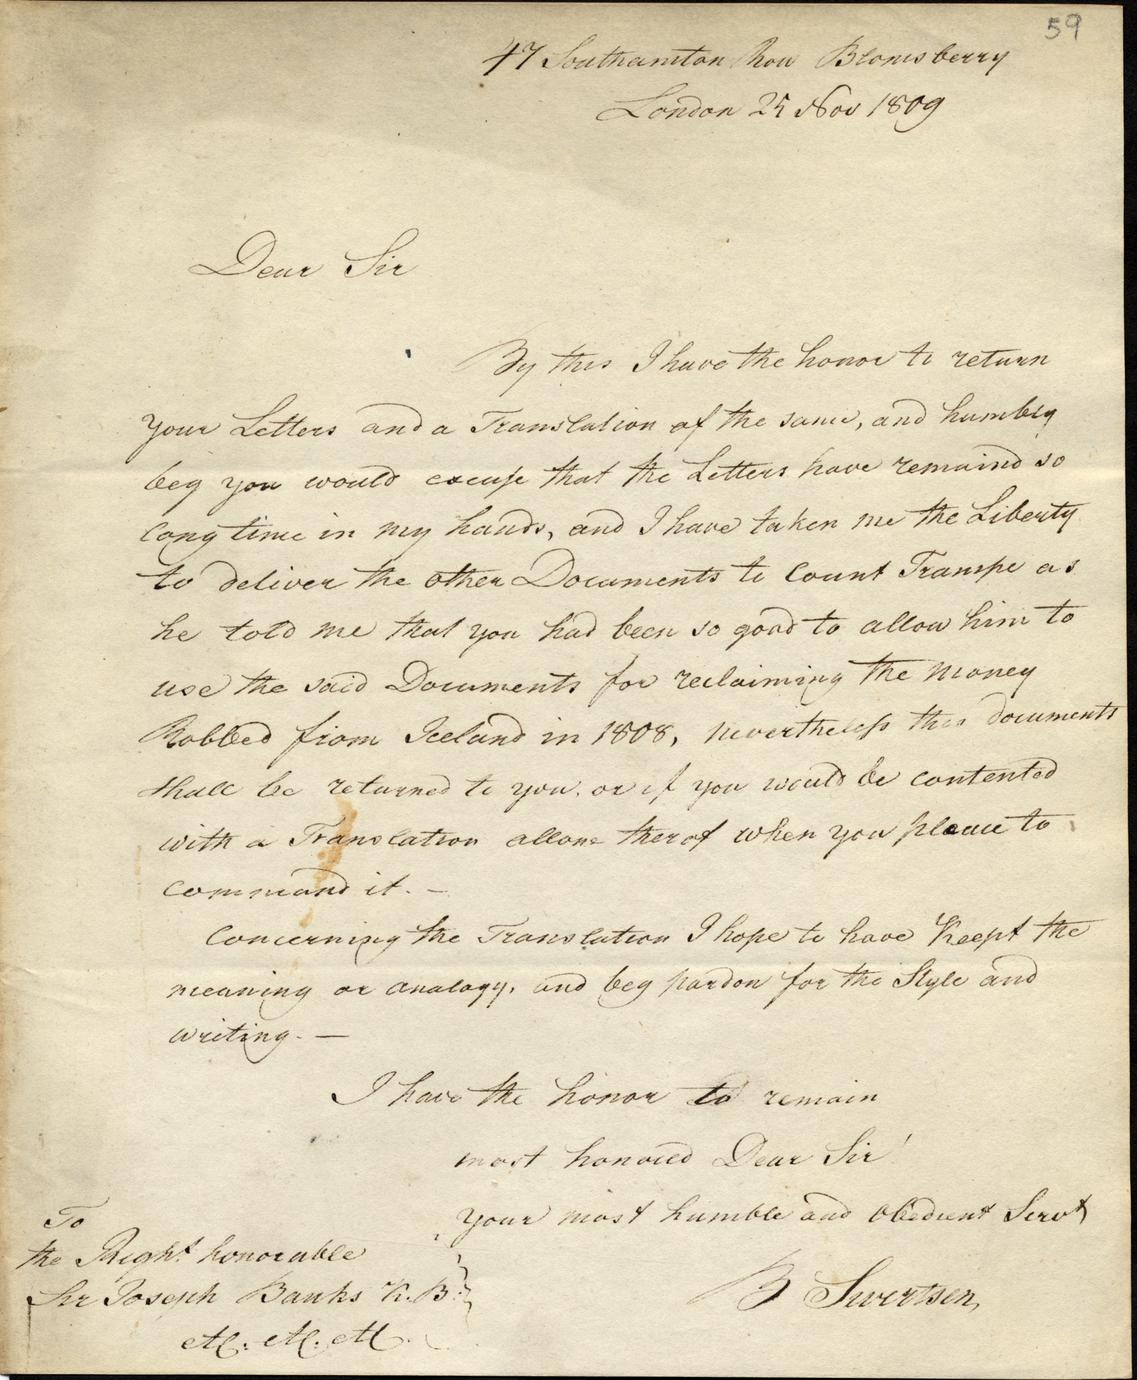 59
47 Southamton Row Blomsberry
London 25 Nov 1809
Dear Sir
By this I have the honor to return
your Letters and a Translation of the same, and humbly
beg you would excuse that the Letters have remained so
long time in my hands, and I have taken me the Liberty
to deliver the other Documents to Count Trampe as
he told me that you had been so good to allow him to
use the said Documents for reclaiming the Money
Robbed from Iceland in 1808, nevertheless this documents
shall be returned to you. or if you would be contented
with a Translation allone therof when you please to
command it. —
Concerning the Translation I hope to have Keept the
meaning or analogy, and beg pardon for the Style and
writing. —
I have the honor to remain
most honored Dear Sir!
your most humble and Obedient Servt
B Sivertsen,
To
the Right honorable
Sir Joseph Banks K. B.
etc. etc. etc.